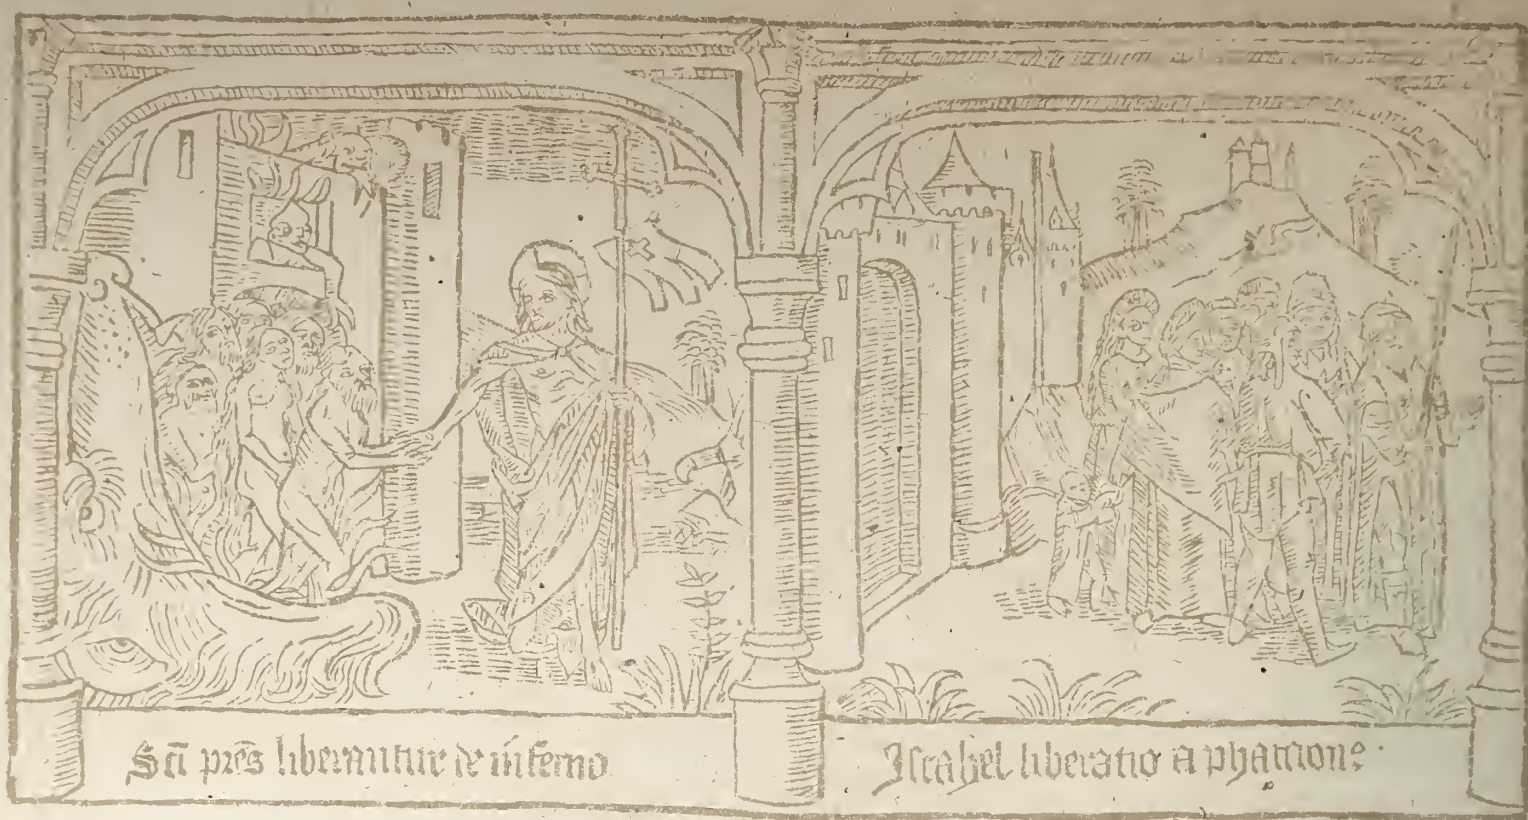 Sc̄i pr̄es liberantur de inferno
Israhel liberatio a pharaone